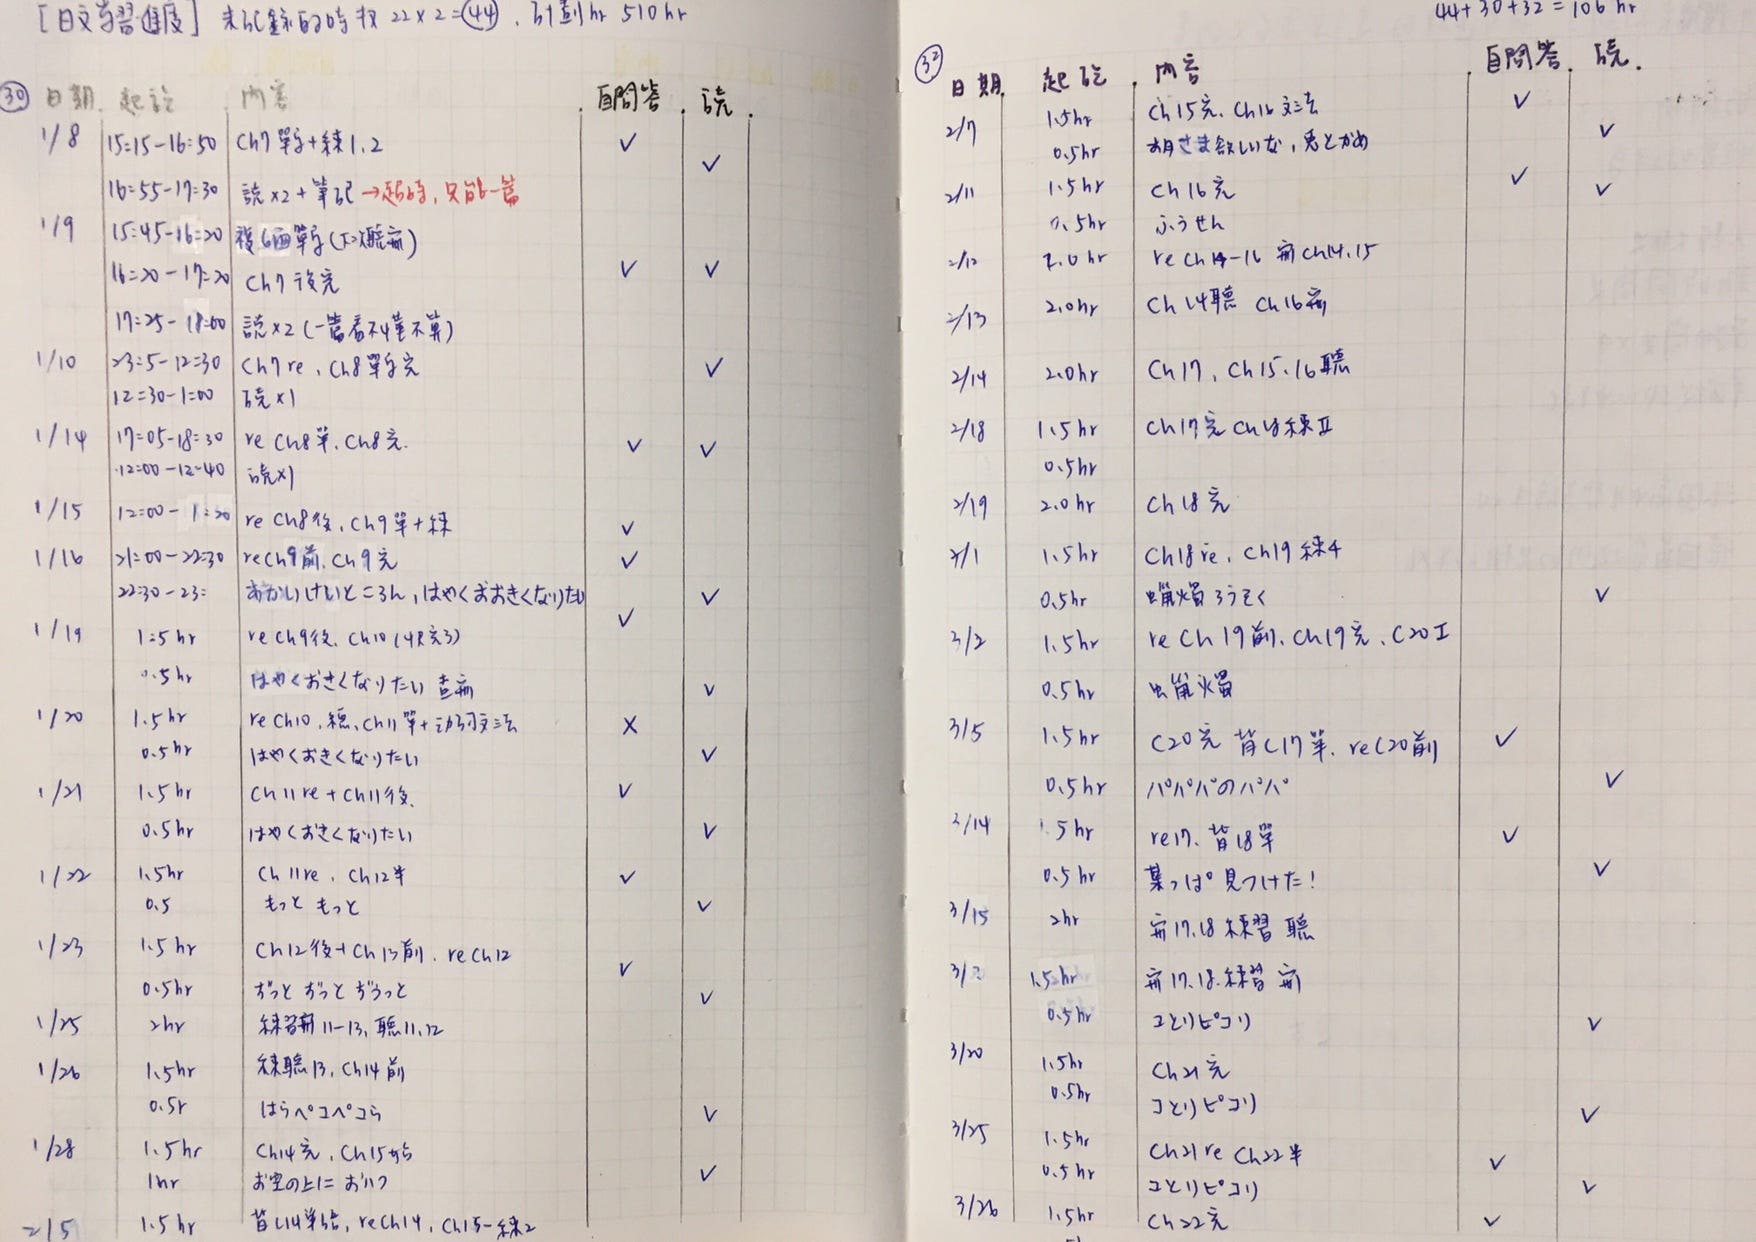 [日文学習進度] 未記錄的時 22×2=44, 計劃hr 510hr
30 日期 起訖 內容 自問答 読
1/8 15:15-16:50 Ch7單字+練1.2 ✓
16:55-17:30 読×2+筆記→超時,只能一篇 ✓
1/9 15:45-16:20 複6回單字
16:20-17:20 Ch7後完 ✓ ✓
17:25-18:00 読×2(一篇看不懂不算)
1/10 23:5-12:30 Ch7re, Ch8單字完 ✓
12:30-1:00 読×1
1/14 17:05-18:30 re Ch8單. Ch8完. ✓ ✓
12:00-12:40 読×1
1/15 12:00-1:20 re Ch8後, Ch9單+練 ✓
1/16 21:00-22:30 reCh9前. Ch9完 ✓
22:30-23: あかいけいところん, はやくおおきくなりたい ✓
1/19 1.5hr re Ch9後. Ch10 ✓
0.5hr はやくおきくなりたい ✓
1/20 1.5hr reCh10. 聴. Ch11單+動詞文法 X
0.5hr はやくおきくなりたい ✓
1/21 1.5hr Ch11re+Ch11後. ✓
0.5hr はやくおきくなりたい ✓
1/22 1.5hr Ch11re. Ch12半 ✓
0.5 もっと もっと ✓
1/23 1.5hr Ch12後+Ch13前. reCh12 ✓
0.5hr ずっと ずっと ずうっと ✓
1/25 2hr 練習 11-13, 聽11.12
1/26 1.5hr 練聽13, Ch14前
0.5r はらペコペコら ✓
1/28 1.5hr Ch14完, Ch15
1hr お空の上に ✓
2/5 1.5hr 背L14單語, reCh14, Ch15-練2
44+30+32=106 hr
32 日期 起訖 內容 自問答. 読.
2/7 1.5hr Ch15完. Ch16文法 ✓
0.5hr お月さま欲しいな, 兎とかめ ✓
2/11 1.5hr Ch16完 ✓ ✓
0.5hr ふうせん
2/12 2.0hr re Ch14-16 Ch14.15
2/13 2.0hr Ch14聽 Ch16
2/14 2.0hr Ch17, Ch15.16聽
2/18 1.5hr Ch17完 Ch18練Ⅱ
0.5hr
2/19 2.0hr Ch18完
3/1 1.5hr Ch18re, Ch19練4
0.5hr ろうそく ✓
3/2 1.5hr re Ch19前. Ch19完. C20Ⅰ
0.5hr
3/5 1.5hr C20完 背L17單. reC20前 ✓
0.5hr パパパのパパ ✓
3/14 1.5hr re17. 背18單 ✓
0.5hr 葉っぱ 見つけた! ✓
3/15 2hr 17.18練習 聽
1.5hr 17.18.練習
0.5hr コとりピコリ ✓
3/20 1.5hr Ch21完
0.5hr コとりピコリ ✓
3/25 1.5hr Ch21re Ch22半 ✓
0.5hr コとりピコリ ✓
3/26 1.5hr Ch22完 ✓